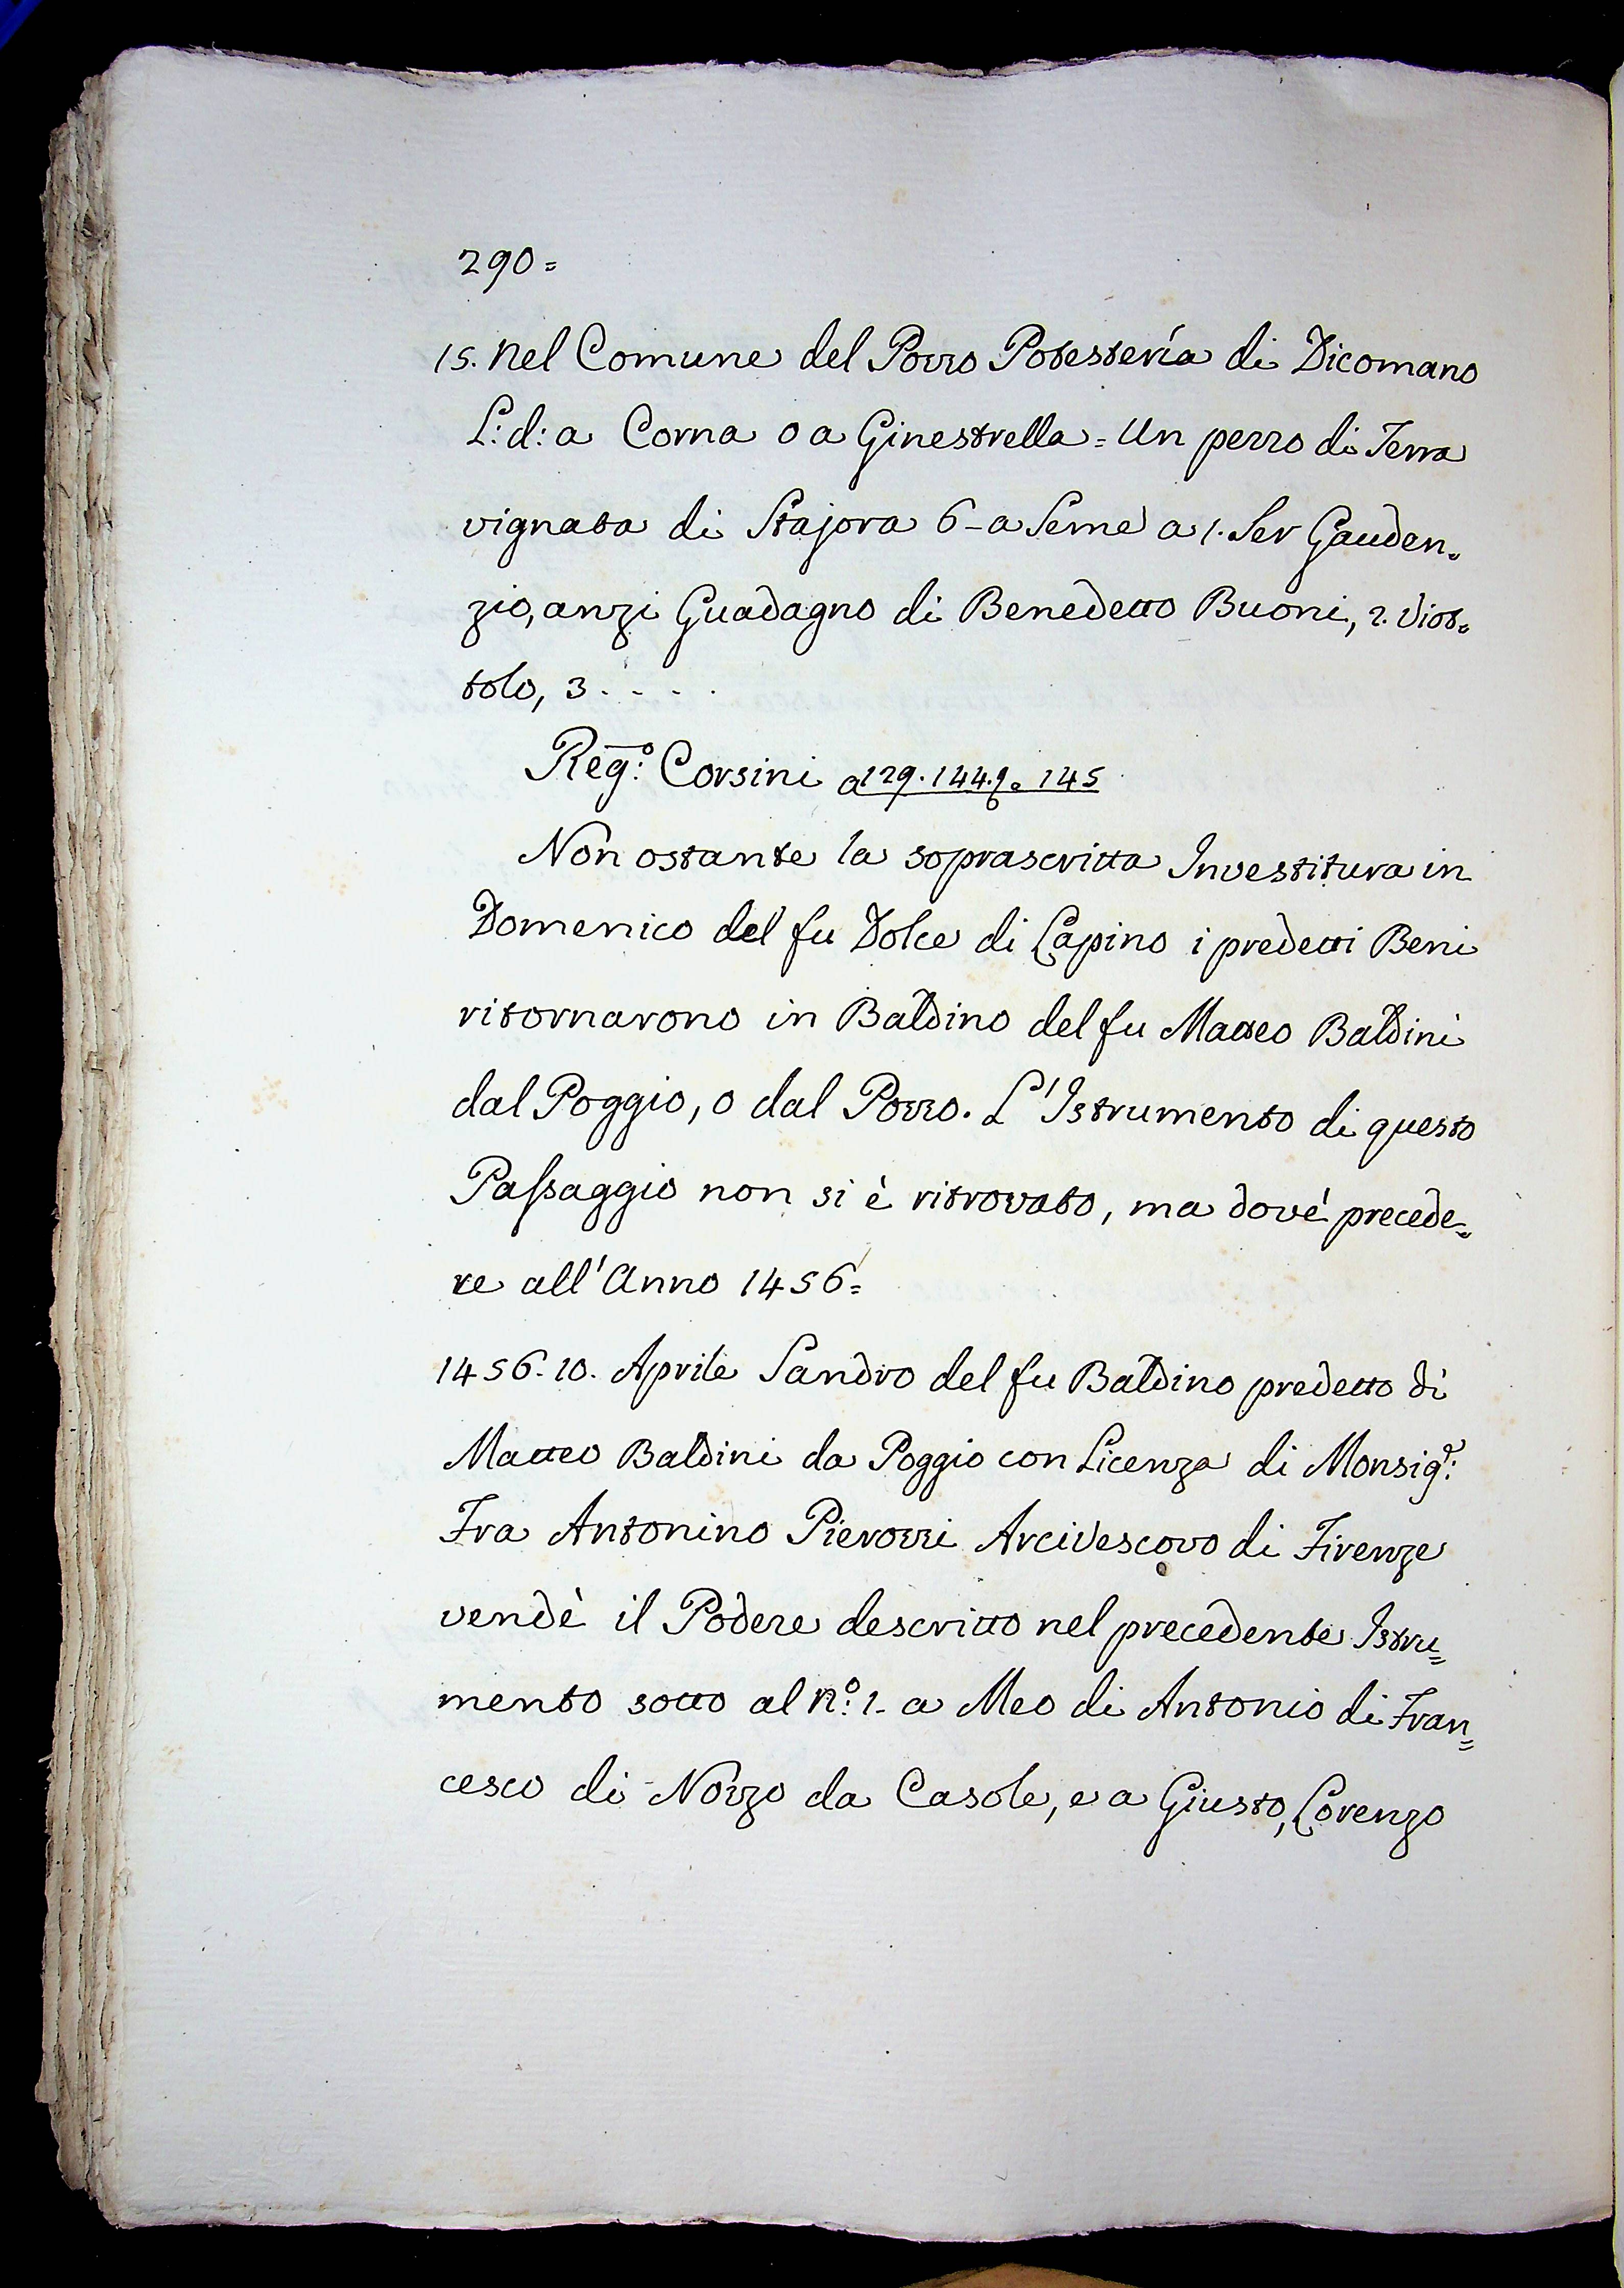 290=
15. Nel Comune del Pozzo Potestería di Dicomano
L: d: a Corna o a Ginestrella = Un pezzo di Terra
vignata di Stajora 6- a Seme a 1. Ser Gauden=
zio, anzi Guadagno di Benedetto Buoni, 2. Viot=
tolo, 3. . . . .
Reg:º Corsini a 129. 144. e 145
Non ostante la soprascritta Investitura in
Domenico del fu Dolce di Lapino i predetti Beni
ritornarono in Baldino del fu Matteo Baldini
dal Poggio, o dal Pozzo. L'Istrumento di questo
Passaggio non si è ritrovato, ma dové precede=
re all'Anno 1456=
1456. 10. Aprile Sandro del fu Baldino predetto di
Matteo Baldini da Poggio con Licenza di Monsig:r
Fra Antonino Pierozzi Arcivescovo di Firenze
vendè il Podere descritto nel precedente Istru=
mento sotto al Nº: 1- a Meo di Antonio di Fran=
cesco di Nozzo da Casole, e a Giusto, Lorenzo